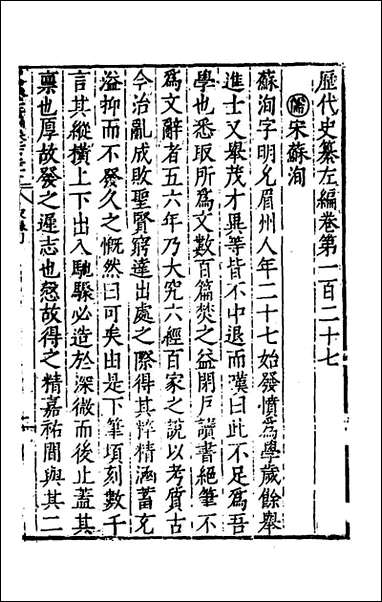 歷代史纂左編卷第一百二十七
儒宋蘇洵
蘇洵字明允眉州人年二十七始發憤爲學歲餘舉
進士又舉茂才異等皆不中退而嘆曰此不足爲吾
學也悉取所爲文數百篇焚之益閉戶讀書絕筆不
爲文辭者五六年乃大究六經百家之說以考質古
今治亂成敗聖賢窮達出處之際得其粹精涵蓄充
溢抑而不發久之慨然曰可矣由是下筆頃刻數千
言其縱橫上下出入馳驟必造於深微而後止蓋其
稟也厚故發之遲志也愨故得之精嘉祐間與其二